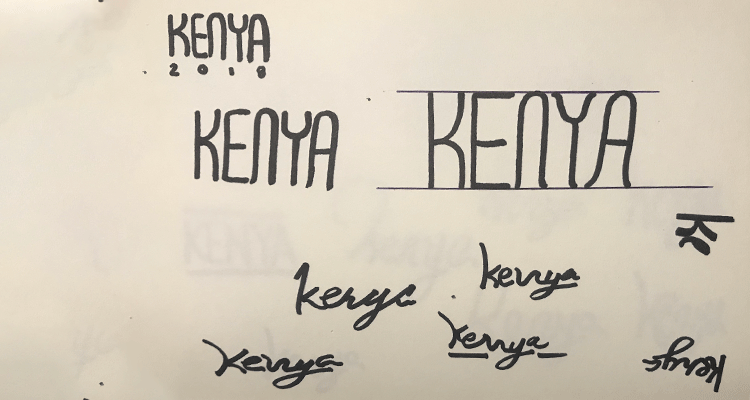 KENYA
2018
KENYA
KENYA
Ke
kenya
kenya
kenya
kenya
kenya